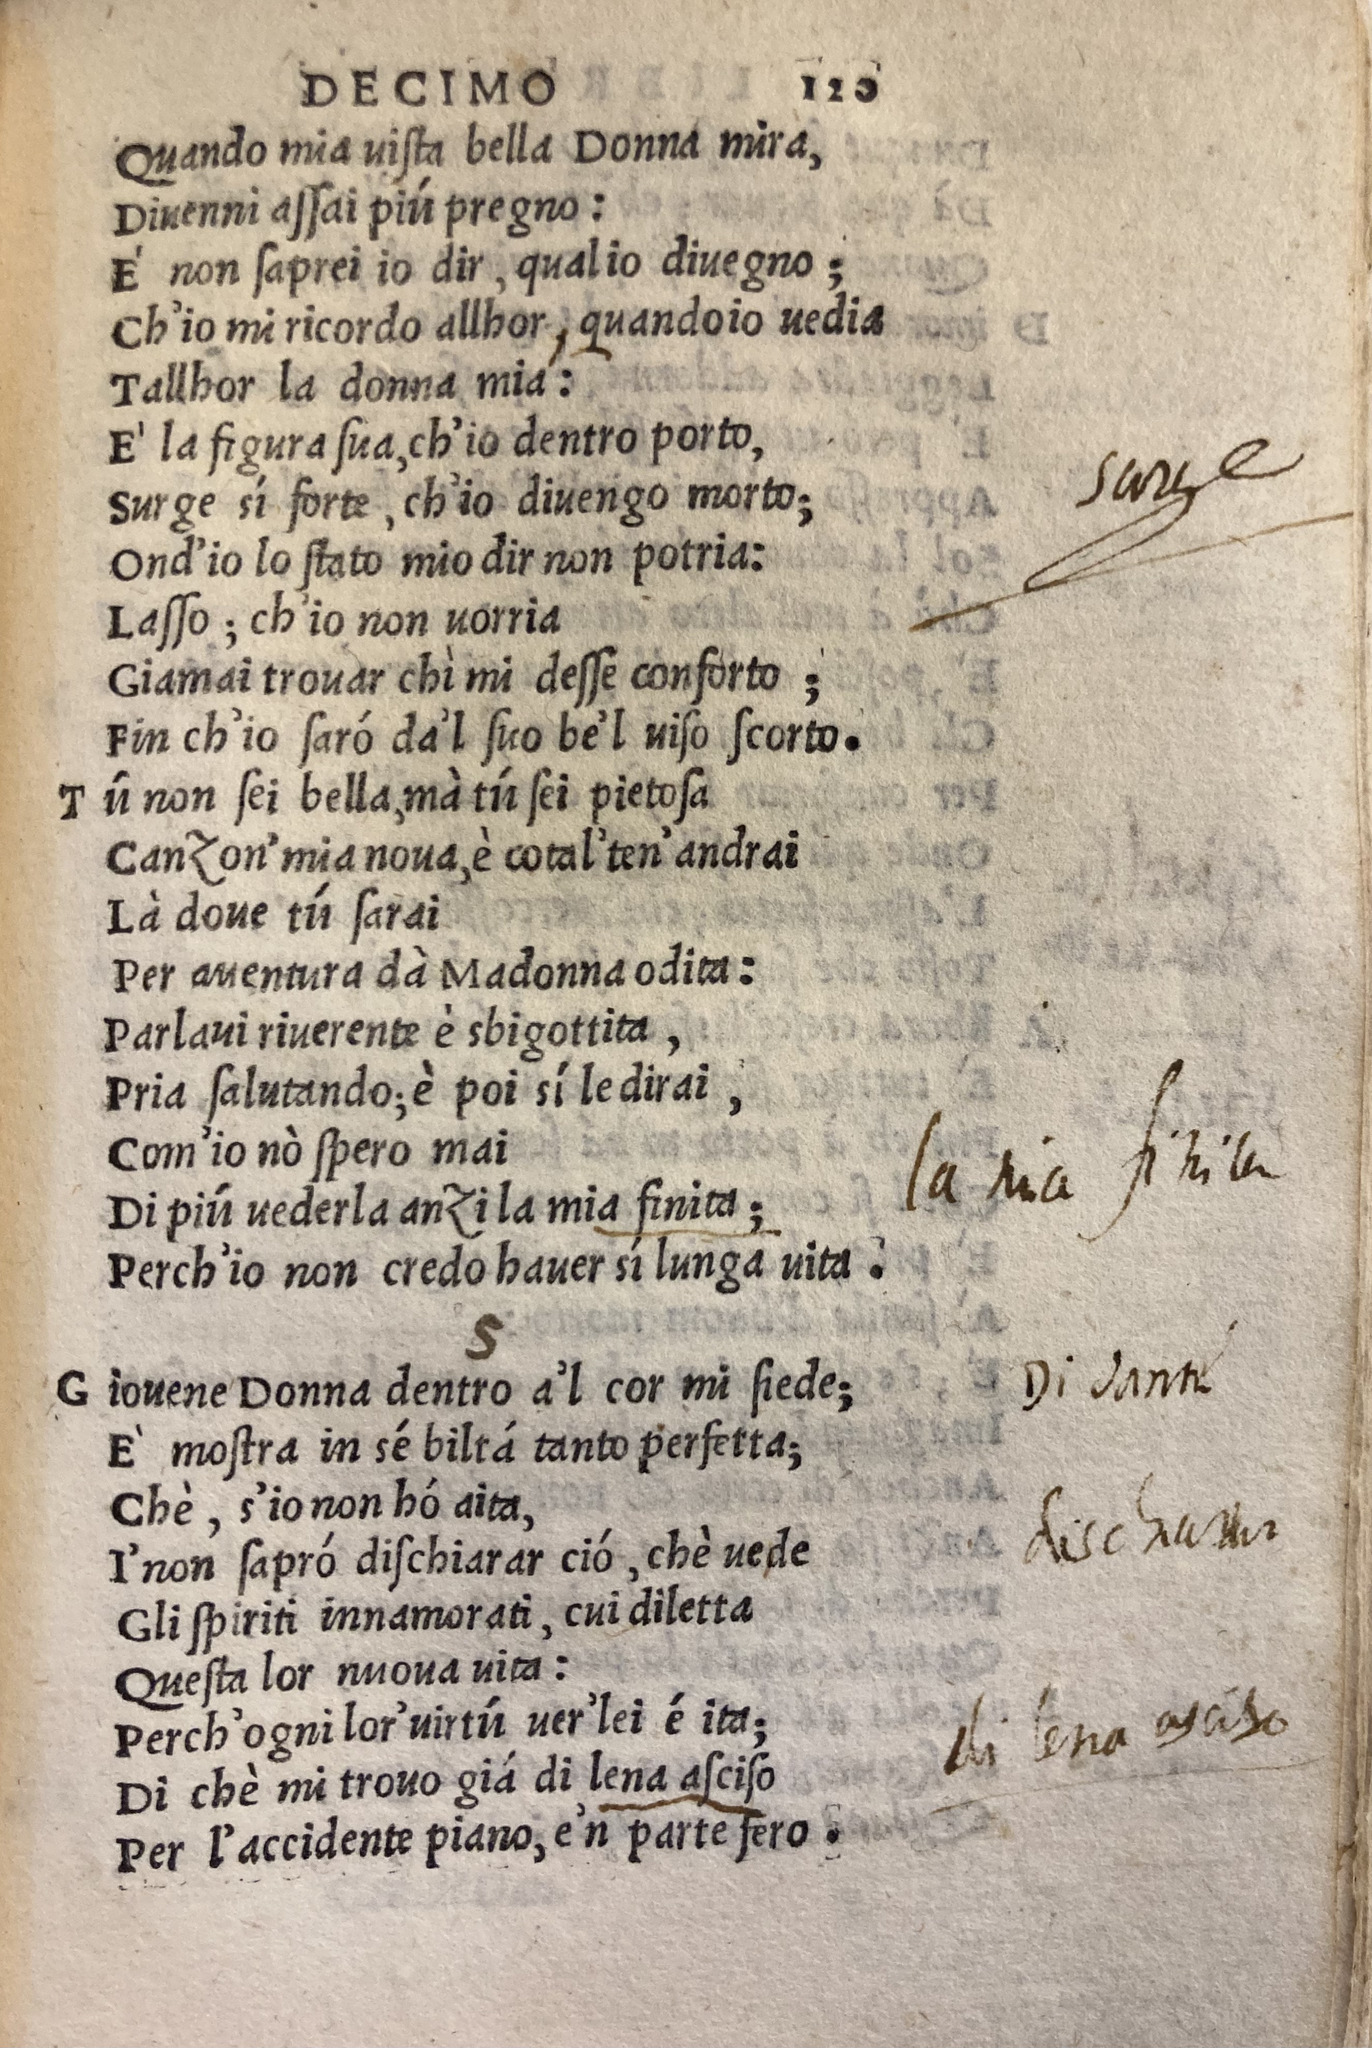 DECIMO 120
Quando mia uiſta bella Donna mira,
Diuenni aſſai piú pregno:
E' non ſaprei io dir, qual io diuegno;
Ch'io mi ricordo allhor, quando io uedia
Tallhor la donna mia:
E' la figura ſua, ch'io dentro porto,
Surge sí forte, ch'io diuengo morto;
surge
Ond'io lo ſtato mio dir non potria:
Laſſo; ch'io non uorria
Giamai trouar chì mi deſſe conforto;
Fin ch'io ſaró da'l ſuo be'l uiſo ſcorto.
Tú non ſei bella, mà tú ſei pietoſa
Canzon' mia noua, è cotal' ten' andrai
Là doue tú ſarai
Per auentura dà Madonna odita:
Parlaui riuerente è sbigottita,
Pria ſalutando; è poi sí le dirai,
Com'io nò ſpero mai
Di piú uederla anzi la mia finita;
la mia finita
Perch'io non credo hauer sí lunga uita.
S
Giouene Donna dentro a'l cor mi ſiede;
Di dante
E' moſtra in sé biltá tanto perfetta;
Chè, s'io non hó aita,
I' non ſapró diſchiarar ció, chè uede
dischiarar
Gli ſpiriti innamorati, cui diletta
Queſta lor nuoua uita:
Perch'ogni lor' uirtú uer' lei é ita;
Di chè mi trouo giá di lena aſciſo
di lena asciso
Per l'accidente piano, e'n parte fero.